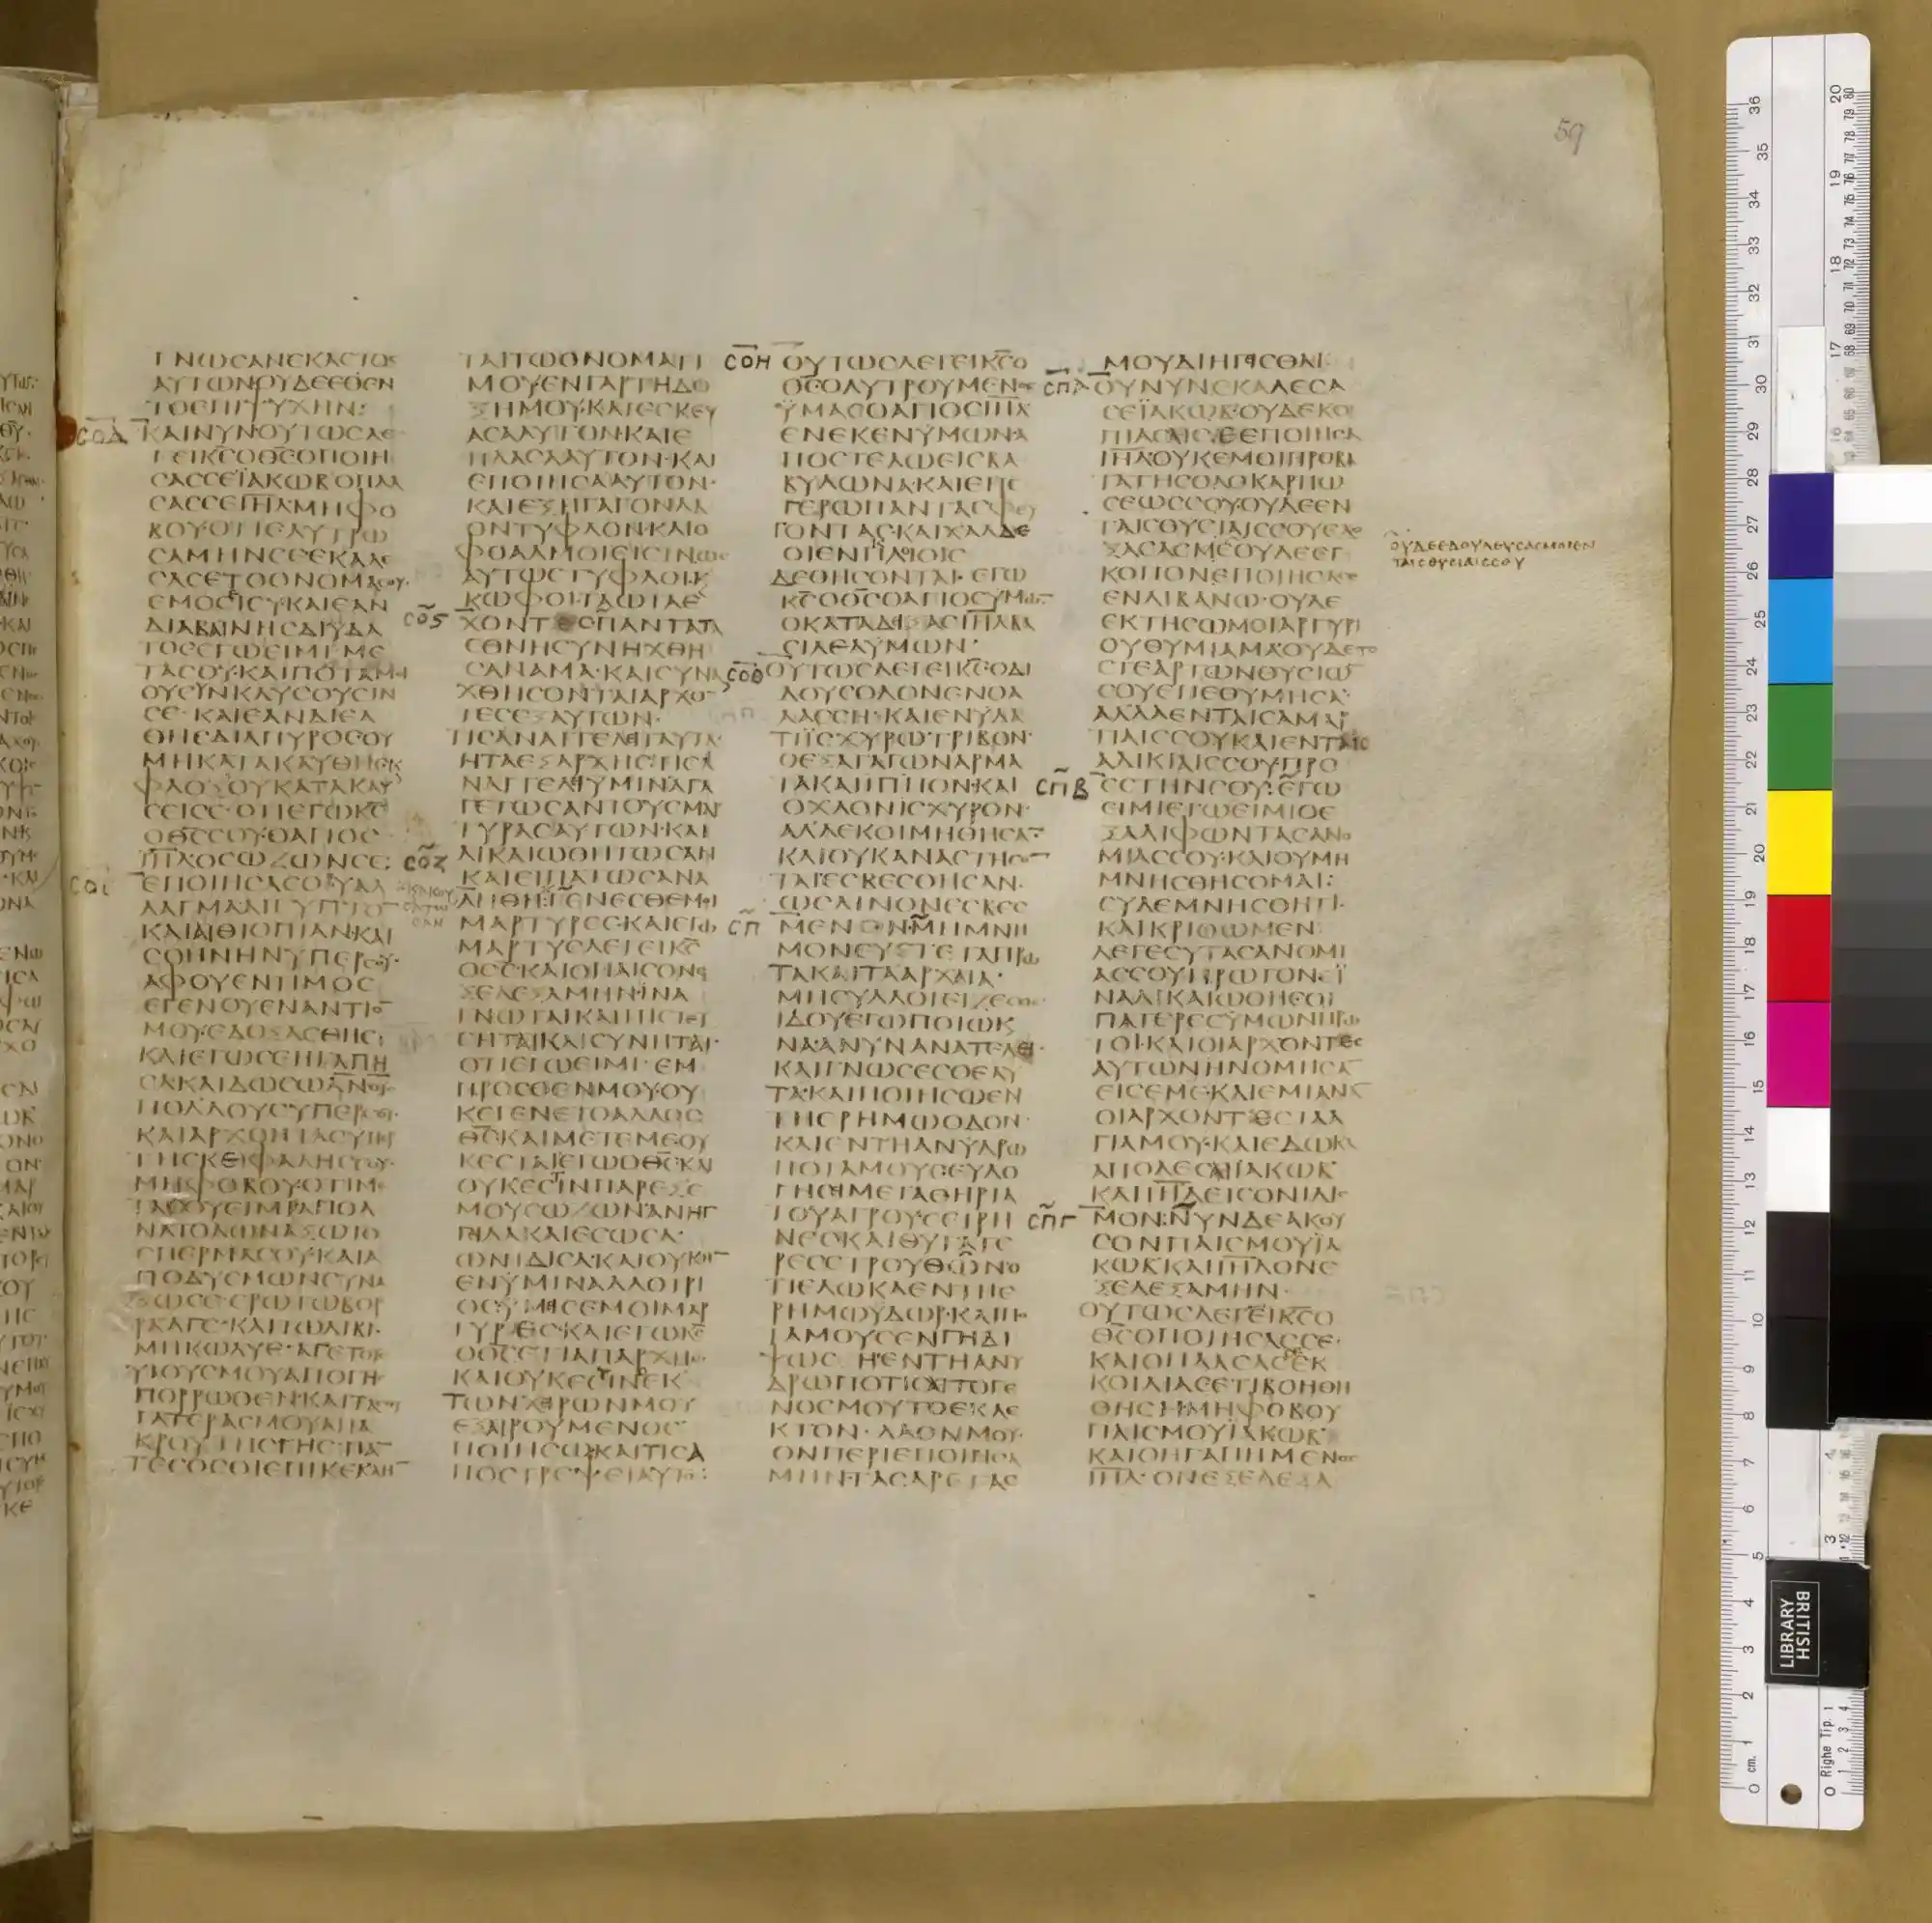 59
ΓΝΩϹΑΝΕΚΑϹΤΟϹ
ΑΥΤΩΝΟΥΔΕΕΘΕΝ
ΤΟΕΠΙΨΥΧΗΝ:
ϹΟΔ ΚΑΙΝΥΝΟΥΤΩϹΛΕ
ΓΕΙΚ̅Ϲ̅ΟΘ̅Ϲ̅ΟΠΟΙΗ
ϹΑϹϹΕΪΑΚΩΒΟΠΛΑ
ϹΑϹϹΕΙ̅Η̅Λ̅ΜΗΦΟ
ΒΟΥ·ΟΤΙΕΛΥΤΡΩ
ϹΑΜΗΝϹΕΕΚΑΛΕ
ϹΑϹΕΤΟΟΝΟΜΑϹΟΥ·
ΕΜΟϹΕΙϹΥ·ΚΑΙΕΑΝ
ΔΙΑΒΑΙΝΗϹΔΙΫΔΑ
ΤΟϹΕΓΩΕΙΜΙ·ΜΕ
ΤΑϹΟΥ·ΚΑΙΠΟΤΑΜΟΙ
ΟΥϹΥΝΚΛΥϹΟΥϹΙΝ
ϹΕ·ΚΑΙΕΑΝΔΙΕΛ
ΘΗϹΔΙΑΠΥΡΟϹΟΥ
ΜΗΚΑΤΑΚΑΥΘΗϹΗ
ΦΛΟΞΟΥΚΑΤΑΚΑΥ
ϹΕΙϹΕ·ΟΤΙΕΓΩΚ̅Ϲ̅
ΟΘ̅Ϲ̅ϹΟΥ·ΟΑΓΙΟϹ
Ι̅Η̅Λ̅ΟϹΩΖΩΝϹΕ:
ϹΟΕ ΕΠΟΙΗϹΑϹΟΥΑΛ
ΛΑΓΜΑΑΙΓΥΠΤΟ̅
ΚΑΙΑΙΘΙΟΠΙΑΝ·ΚΑΙ
ϹΟΗΝΗΝΥΠΕΡϹΟΥ·
ΑΦΟΥΕΝΤΙΜΟϹ
ΕΓΕΝΟΥΕΝΑΝΤΙΟ̅
ΜΟΥ·ΕΔΟΞΑϹΘΗϹ:
ΚΑΙΕΓΩϹΕΗΓΑΠΗ
ϹΑΚΑΙΔΩϹΩΑ̅Ν̅ΟΥϹ
ΠΟΛΛΟΥϹΥΠΕΡϹΟΥ·
ΚΑΙΑΡΧΟΝΤΑϹΥΠΕΡ
ΤΗϹΚΕΦΑΛΗϹϹΟΥ·
ΜΗΦΟΒΟΥ·ΟΤΙΜΕ
ΤΑϹΟΥΕΙΜΙ·ΑΠΟΑ
ΝΑΤΟΛΩΝΑΞΩΤΟ
ϹΠΕΡΜΑϹΟΥ·ΚΑΙΑ
ΠΟΔΥϹΜΩΝϹΥΝΑ
ΞΩϹΕ·ΕΡΩΤΩΒΟΡ
ΡΑΑΓΕ·ΚΑΙΤΩΛΙΒΙ·
ΜΗΚΩΛΥΕ·ΑΓΕΤΟΥϹ
ΥΙΟΥϹΜΟΥΑΠΟΓΗϹ
ΠΟΡΡΩΘΕΝ·ΚΑΙΤΑϹ
ΘΥΓΑΤΕΡΑϹΜΟΥΑΠΑ
ΚΡΟΥΤΗϹΓΗϹ·ΠΑ̅
ΤΕϹΟϹΟΙΕΠΙΚΕΚΛΗ̅
ΤΑΙΤΩΟΝΟΜΑΤΙ
ΜΟΥ·ΕΝΓΑΡΤΗΔΟ
ΞΗΜΟΥ·ΚΑΙΕϹΚΕΥ
ΑϹΑΑΥΤΟΝ·ΚΑΙΕ
ΠΛΑϹΑΑΥΤΟΝ·ΚΑΙ
ΕΠΟΙΗϹΑΑΥΤΟΝ·
ΚΑΙΕΞΗΓΑΓΟΝΛΑ
ΟΝΤΥΦΛΟΝ·ΚΑΙΟ
ΦΘΑΛΜΟΙΕΙϹΙΝΩϹ
ΑΥΤΩϹΤΥΦΛΟΙ·Κ
ΚΩΦΟΙΤΑΩΤΑΕ
ϹΟϚ ΧΟΝΤΕϹΠΑΝΤΑΤΑ
ϹΘΝΗϹΥΝΗΧΘΗ
ϹΑΝΑΜΑ·ΚΑΙϹΥΝΑ
ΧΘΗϹΟΝΤΑΙΑΡΧΟ̅
ΤΕϹΕΞΑΥΤΩΝ·
ΤΙϹΑΝΑΓΓΕΛΕΙΤΑΥΤΑ
ΗΤΑΕΞΑΡΧΗϹ·ΤΙϹΑ
ΝΑΓΓΕΛΕΙΥΜΙΝ·ΑΓΑ
ΓΕΤΩϹΑΝΤΟΥϹΜΑΡ
ΤΥΡΑϹΑΥΤΩΝ·ΚΑΙ
ϹΟΖ ΔΙΚΑΙΩΘΗΤΩϹΑΝ
ΚΑΙΕΙΠΑΤΩϹΑΝΑ
ΛΗΘΗ:ΓΕΝΕϹΘΕΜΟΙ
ΜΑΡΤΥΡΕϹ·ΚΑΙΕΓΩ
ΜΑΡΤΥϹΛΕΓΕΙΚ̅Ϲ̅
ΟΘ̅Ϲ̅·ΚΑΙΟΠΑΙϹΟΝΕ
ΞΕΛΕΞΑΜΗΝ·ΙΝΑ
ΓΝΩΤΑΙΚΑΙΠΙϹΤΕΥ
ϹΗΤΑΙΚΑΙϹΥΝΗΤΑΙ·
ΟΤΙΕΓΩΕΙΜΙ·ΕΜ
ΠΡΟϹΘΕΝΜΟΥ·ΟΥ
ΚΕΓΕΝΕΤΟΑΛΛΟϹ
Θ̅Ϲ̅·ΚΑΙΜΕΤΕΜΕΟΥ
ΚΕϹΤΑΙ·ΕΓΩΟΘ̅Ϲ̅·ΚΑΙ
ΟΥΚΕϹΤΙΝΠΑΡΕΞΕ
ΜΟΥϹΩΖΩΝ·ΑΝΗΓ
ΓΙΛΑΚΑΙΕϹΩϹΑ·
ΩΝΙΔΙϹΑ·ΚΑΙΟΥΚΗ̅
ΕΝΫΜΙΝΑΛΛΟΤΡΙ
ΟϹΥΜΕΙϹΕΜΟΙΜΑΡ
ΤΥΡΕϹ·ΚΑΙΕΓΩΚ̅Ϲ̅
ΟΘ̅Ϲ̅ΕΤΙΑΠΑΡΧΗϹ·
ΚΑΙΟΥΚΕϹΤΙΝΕΚ
ΤΩΝΧΕΙΡΩΝΜΟΥ
ΕΞΑΙΡΟΥΜΕΝΟϹ
ΠΟΙΗϹΩ·ΚΑΙΤΙϹΑ
ΠΟϹΤΡΕΨΕΙΑΥΤΟ:
ϹΟΗ ΟΥΤΩϹΛΕΓΕΙΚ̅Ϲ̅Ο
ΟΘ̅Ϲ̅ΟΛΥΤΡΟΥΜΕΝΟϹ
ΫΜΑϹΟΑΓΙΟϹΙ̅Η̅Λ̅
ΕΝΕΚΕΝΥΜΩΝ·Α
ΠΟϹΤΕΛΩΕΙϹΒΑ
ΒΥΛΩΝΑ·ΚΑΙΕΠΕ
ΓΕΡΩΠΑΝΤΑϹΦΕΥ
ΓΟΝΤΑϹ·ΚΑΙΧΑΛΔΕ
ΟΙΕΝΠΛΟΙΟΙϹ
ΔΕΘΗϹΟΝΤΑΙ·ΕΓΩ
Κ̅Ϲ̅ΟΘ̅Ϲ̅ΟΑΓΙΟϹΥΜΩ̅
ΟΚΑΤΑΔΕΙΞΑϹΙ̅Η̅Λ̅ΒΑ
ϹΙΛΕΑΥΜΩΝ·
ϹΟΘ ΟΥΤΩϹΛΕΓΕΙΚ̅Ϲ̅·ΟΔΙ
ΔΟΥϹΟΔΟΝΕΝΘΑ
ΛΑϹϹΗ·ΚΑΙΕΝΥΔΑ
ΤΙΪϹΧΥΡΩΤΡΙΒΟΝ·
ΟΕΞΑΓΑΓΩΝΑΡΜΑ
ΤΑΚΑΙΙΠΠΟΝ·ΚΑΙ
ΟΧΛΟΝΙϹΧΥΡΟΝ·
ΑΛΛΕΚΟΙΜΗΘΗϹΑ̅
ΚΑΙΟΥΚΑΝΑϹΤΗϹΟ̅
ΤΑΙΕϹΒΕϹΘΗϹΑΝ·
ΩϹΛΙΝΟΝΕϹΒΕϹ
ϹΠ ΜΕΝΟΝ·ΜΗΜΝΗ
ΜΟΝΕΥΕΤΕΤΑΠΡΩ
ΤΑΚΑΙΤΑΑΡΧΑΙΑ·
ΜΗϹΥΛΛΟΓΕΙΖΕϹΘΕ·
ΙΔΟΥΕΓΩΠΟΙΩΚ
ΝΑ·ΑΝΥΝΑΝΑΤΕΛΕΙ·
ΚΑΙΓΝΩϹΕϹΘΕΑΥ
ΤΑ·ΚΑΙΠΟΙΗϹΩΕΝ
ΤΗΕΡΗΜΩΟΔΟΝ·
ΚΑΙΕΝΤΗΑΝΥΔΡΩ
ΠΟΤΑΜΟΥϹ·ΕΥΛΟ
ΓΗϹΕΙΜΕΤΑΘΗΡΙΑ
ΤΟΥΑΓΡΟΥ·ϹΕΙΡΗ
ΝΕϹ·ΚΑΙΘΥΓΑΤΕ
ΡΕϹϹΤΡΟΥΘΩΝ·Ο
ΤΙΕΔΩΚΑΕΝΤΗΕ
ΡΗΜΩΥΔΩΡ·ΚΑΙΠΟ
ΤΑΜΟΥϹΕΝΓΗΔΙ
ΨΩϹΗ·ΕΝΤΗΑΝΥ
ΔΡΩΠΟΤΙϹΑΙΤΟΓΕ
ΝΟϹΜΟΥΤΟΕΚΛΕ
ΚΤΟΝ·ΛΑΟΝΜΟΥ·
ΟΝΠΕΡΙΕΠΟΙΗϹΑ
ΜΗΝ·ΤΑϹΑΡΕΤΑϹ
ΜΟΥΔΙΗΓΙϹΘΑΙ:
ϹΠΑ ΟΥΝΥΝΕΚΑΛΕϹΑ
ϹΕΪΑΚΩΒ·ΟΥΔΕΚΟ
ΠΙΑϹΑΙϹΕΕΠΟΙΗϹΑ
Ι̅Η̅Λ̅·ΟΥΚΕΜΟΙΠΡΟΒΑ
ΤΑΤΗϹΟΛΟΚΑΡΠΩ
ϹΕΩϹϹΟΥ·ΟΥΔΕΕΝ
ΤΑΙϹΘΥϹΙΑΙϹϹΟΥΕΔΟ
ΞΑϹΑϹΜΕ·ΟΥΔΕΕΓ
ΚΟΠΟΝΕΠΟΙΗϹΑϹΕ
ΕΝΛΙΒΑΝΩ·ΟΥΔΕ
ΕΚΤΗϹΩΜΟΙΑΡΓΥΡΙ
ΟΥΘΥΜΙΑΜΑ·ΟΥΔΕΤΟ
ϹΤΕΑΡΤΩΝΘΥϹΙΩ̅
ϹΟΥΕΠΕΘΥΜΗϹΑ·
ΑΛΛΑΕΝΤΑΙϹΑΜΑΡ
ΤΙΑΙϹϹΟΥΚΑΙΕΝΤΑΙϹ
ΑΔΙΚΙΑΙϹϹΟΥ·ΠΡΟ
ϹΠΒ ΕϹΤΗΝϹΟΥ:ΕΓΩ
ΕΙΜΙΕΓΩΕΙΜΙΟΕ
ΞΑΛΙΦΩΝΤΑϹΑΝΟ
ΜΙΑϹϹΟΥ·ΚΑΙΟΥΜΗ
ΜΝΗϹΘΗϹΟΜΑΙ:
ϹΥΔΕΜΝΗϹΘΗΤΙ·
ΚΑΙΚΡΙΘΩΜΕΝ
ΛΕΓΕϹΥΤΑϹΑΝΟΜΙ
ΑϹϹΟΥΠΡΩΤΟΝ·ΕΪ
ΝΑΔΙΚΑΙΩΘΗΕΟΙ
ΠΑΤΕΡΕϹΥΜΩΝΠΡΩ
ΤΟΙ·ΚΑΙΟΙΑΡΧΟΝΤΕϹ
ΑΥΤΩΝΗΝΟΜΗϹΑ̅
ΕΙϹΕΜΕ·ΚΑΙΕΜΙΑΝΑ̅
ΟΙΑΡΧΟΝΤΕϹΤΑΑ
ΓΙΑΜΟΥ·ΚΑΙΕΔΩΚΑ
ΑΠΟΛΕϹΑΙΪΑΚΩΒ
ΚΑΙΙ̅Η̅Λ̅ΕΙϹΟΝΙΔΙϹ
ϹΠΓ ΜΟΝ:ΝΥΝΔΕΑΚΟΥ
ϹΟΝΠΑΙϹΜΟΥΪΑ
ΚΩΒ·ΚΑΙΙ̅Η̅Λ̅ΟΝΕ
ΞΕΛΕΞΑΜΗΝ·
ΟΥΤΩϹΛΕΓΕΙΚ̅Ϲ̅Ο
Θ̅Ϲ̅ΟΠΟΙΗϹΑϹϹΕ·
ΚΑΙΟΠΛΑϹΑϹϹΕΕΚ
ΚΟΙΛΙΑϹΕΤΙΒΟΗΘΗ
ΘΗϹΗ·ΜΗΦΟΒΟΥ
ΠΑΙϹΜΟΥΪΑΚΩΒ
ΚΑΙΟΗΓΑΠΗΜΕΝΟϹ
Ι̅Η̅Λ̅·ΟΝΕΞΕΛΕΞΑ
ΟΥΔΕΕΔΟΥΛΕΥϹΑϹΜΟΙΕΝ
ΤΑΙϹΘΥϹΙΑΙϹϹΟΥ
BRITISH
LIBRARY